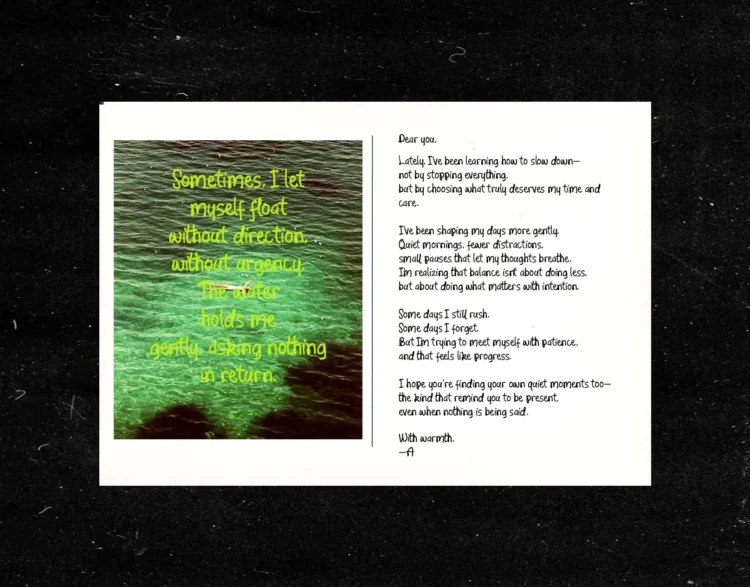 Sometimes, I let
myself float
without direction,
without urgency.
The water
holds me
gently, asking nothing
in return.
Dear you,
Lately, I've been learning how to slow down—
not by stopping everything,
but by choosing what truly deserves my time and
care.
I've been shaping my days more gently.
Quiet mornings, fewer distractions,
small pauses that let my thoughts breathe.
I'm realizing that balance isn't about doing less,
but about doing what matters with intention.
Some days I still rush.
Some days I forget.
But I'm trying to meet myself with patience,
and that feels like progress.
I hope you're finding your own quiet moments too—
the kind that remind you to be present,
even when nothing is being said.
With warmth,
—A